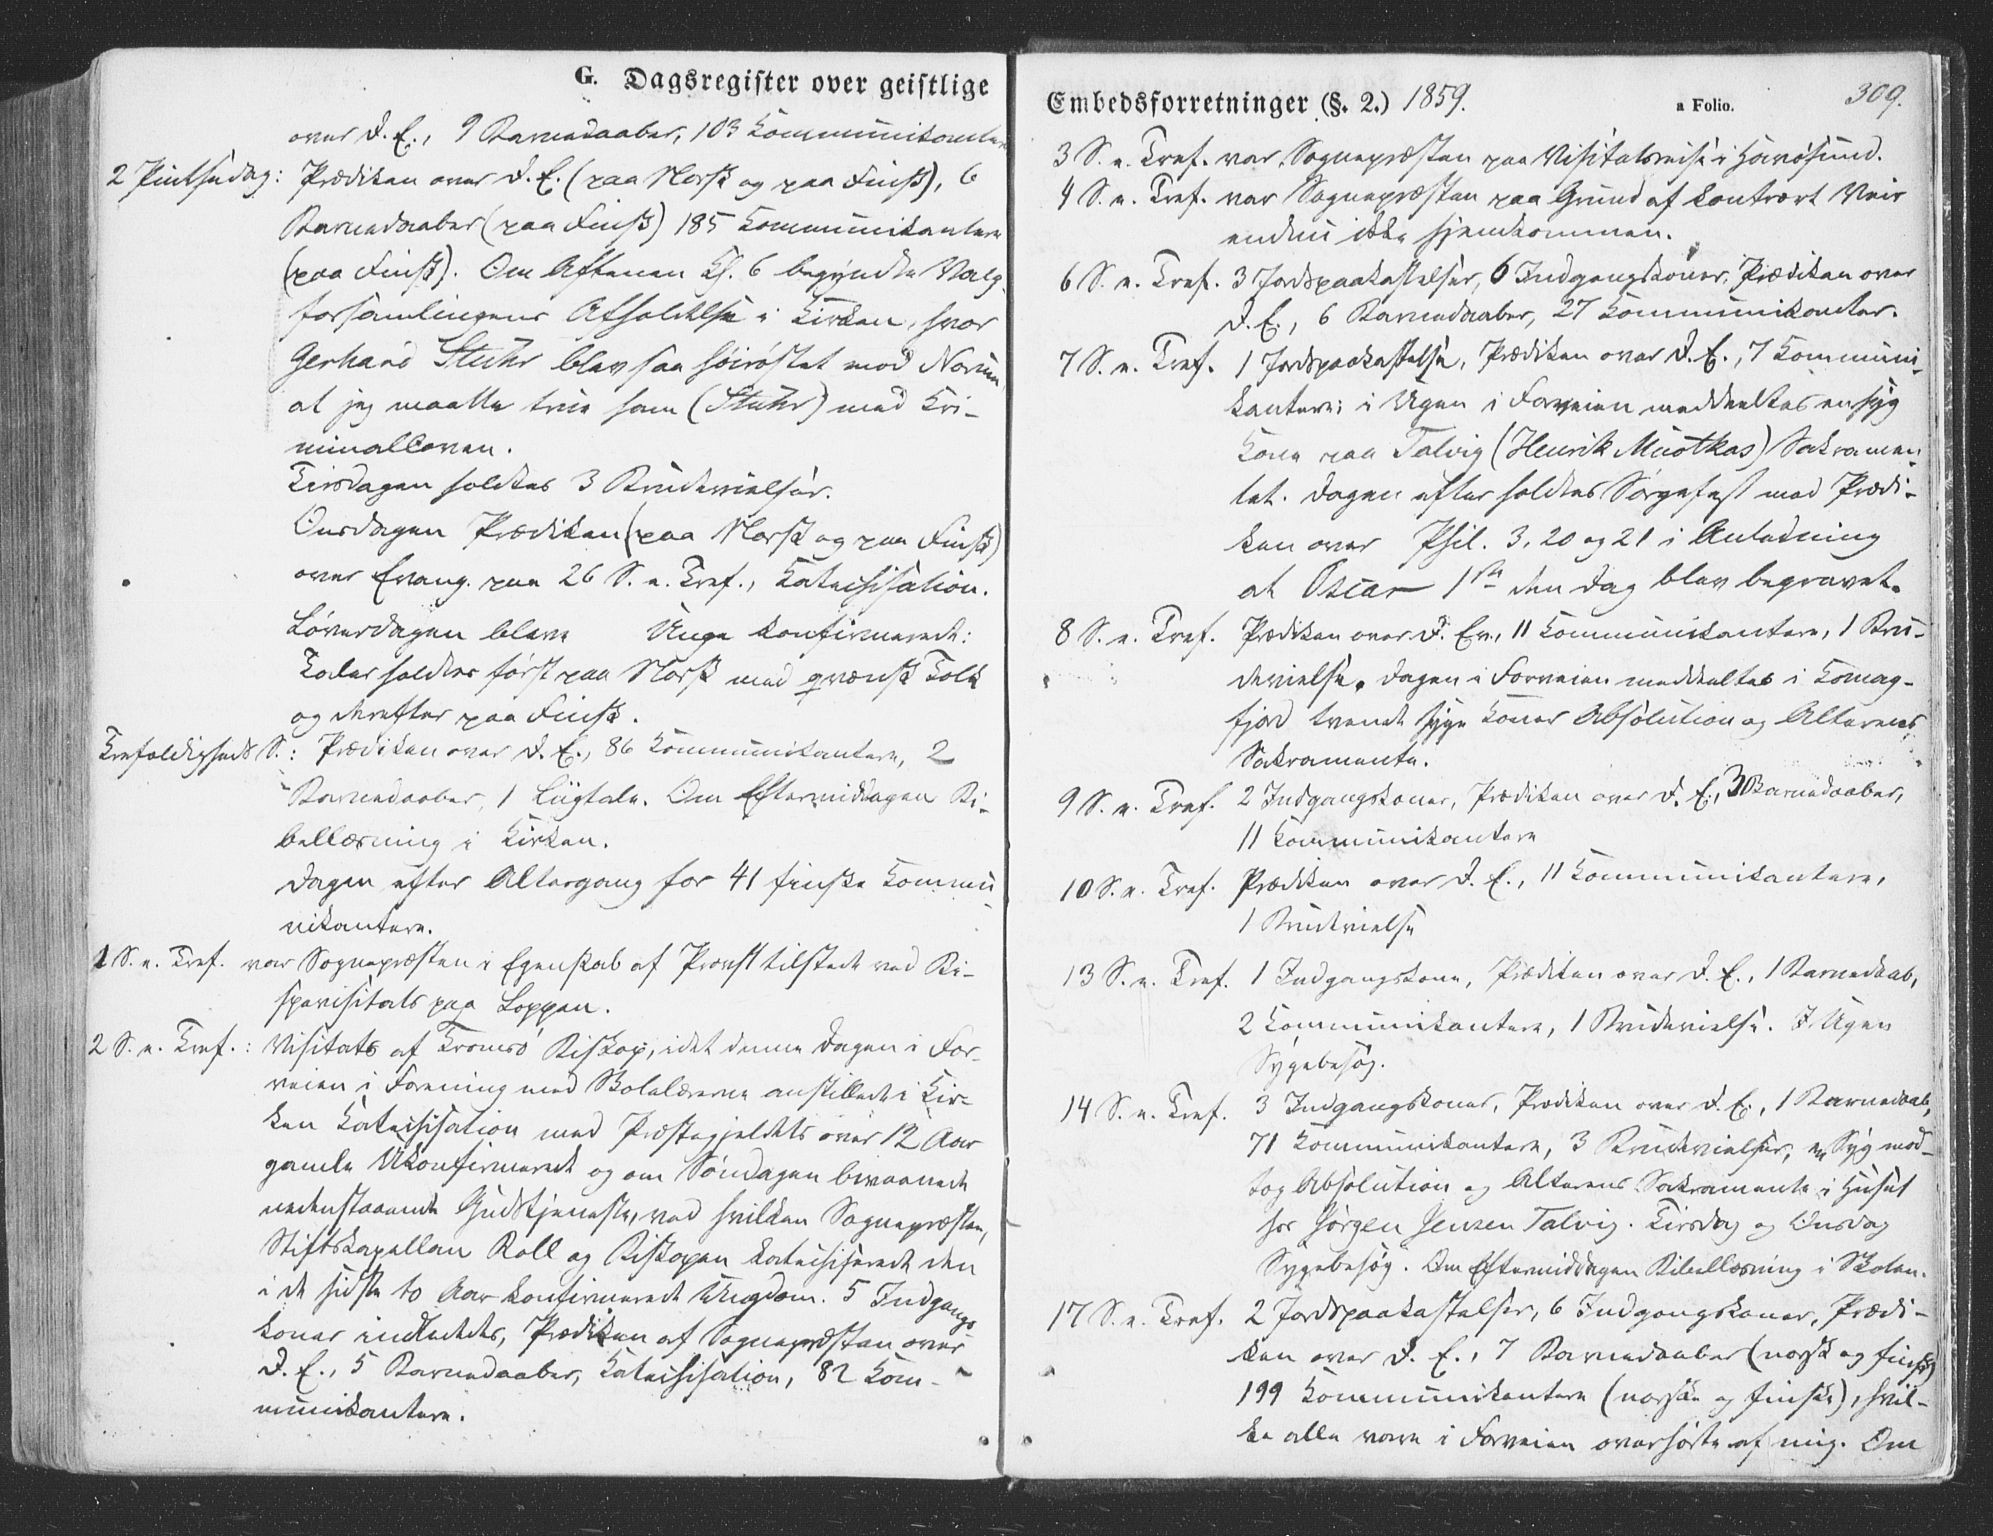 G. Dagsregister over geistlige
over D. E., 9 Barnedaaber, 103 Kommunikanter
2 Pintsedag: Prædiken over D. E. (paa Norsk og paa Finsk), 6
Barnedaaber (paa Finsk) 185 Kommunikantere
(paa Finsk). Om Aftenen Kl. 6 begyndte Valg-
forsamlingens Afholdelse i Kirken, hvor
Gerhard Stuhr blev saa høirøstet mod
at jeg maatte true ham (Stuhr) med Kri-
minalloven.
Tirsdagen holdtes 3 Brudevielser.
Onsdagen Prædiken (paa Norsk og paa Finsk)
over Evang. paa 26 S. e. Tref., Katechisation.
Løverdagen bleve Unge konfirmerede:
Taler holdtes først paa Norsk med qvænsk Tolk
og derefter paa Finsk.
Trefoldigheds S.: Prædiken over D. E., 86 Kommunikantere, 2
Barnedaaber, 1 Liigtale. Om Eftermiddagen Bi-
bellæsning i Kirken.
Dagen efter Altergang for 41 finske Kommu-
nikantere.
1 S. e. Tref. var Sognepræsten i Egenskab af Provst tilstede ved Bi-
spevisitats paa Loppen.
2 S. e. Tref.: Visitats af Tromsø Biskop, idet denne Dagen i For-
veien i Forening med Skolelærerne anstillede i Kir-
ken Katechisation med Præstegjeldets over 12 Aar
gamle Ukonfirmerede og om Søndagen bivaanede
nedenstaaende Gudstjeneste, ved hvilken Sognepræsten,
Stiftskapellan Roll og Biskopen katechiserede den
i de sidste to Aar konfirmerede Ungdom. 5 Indgangs
koner indledets, Prædiken af Sognepræsten over
D. E., 5 Barnedaaber, Katechisation, 82 Kom-
munikantere.
Embedsforretninger (§. 2.) 1859. a Folio. 309.
3 S. e. Tref. var Sognepræsten paa Visitatsreise i Havøsund.
4 S. e. Tref. var Sognepræsten paa Grund af kontrært Veir
endnu ikke hjemkommen.
6 S. e. Tref. 3 Jordspaakastelser, 6 Indgangskoner, Prædiken over
D. E., 6 Barnedaaber, 27 Kommunikanter.
7 S. e. Tref. 1 Jordspaakastelse, Prædiken over D. E., 7 Kommuni-
kantere; i Ugen i Forveien meddeeltes en syg
Kone paa Talvig (Henrik Muotkas) Sakramen-
tet. Dagen efter holdtes Sørgefest med Prædi-
ken over Phil. 3, 20 og 21 i Anledning
at Oscar 1ste den Dag blev begravet.
8 S. e. Tref. Prædiken over D. Ev., 11 Kommunikantere, 1 Bru-
devielse. Dagen i Forveien meddeeltes i Komag-
fjord tvende syge Koner Absolution og Alterens
Sakramente.
9 S. e. Tref. 2 Indgangskoner, Prædiken over D. E., 3 Barnedaaber,
11 Kommunikantere
10 S. e. Tref. Prædiken over D. E., 11 Kommunikantere,
1 Brudevielse
13 S. e. Tref. 1 Indgangskone, Prædiken over D. E., 1 Barnedaab,
2 Kommunikantere, 1 Brudevielse. I Ugen
Sygebesøg.
14 S. e. Tref. 3 Indgangskoner, Prædiken over D. E., 1 Barnedaab,
71 Kommunikantere, 3 Brudevielser, en Syg mod-
tog Absolution og Alterens Sakramente i Huset
hos Jørgen Jensen Talvig. Tirsdag og Onsdag
Sygebesøg. Om Eftermiddagen Bibellæsning i Skolen.
17 S. e. Tref. 2 Jordspaakastelser, 6 Indgangskoner, Prædi-
ken over D. E., 7 Barnedaaber (norsk og finsk)
199 Kommunikantere (norske og finske), hvil-
ke alle vare i Forveien overhørte af mig. Om